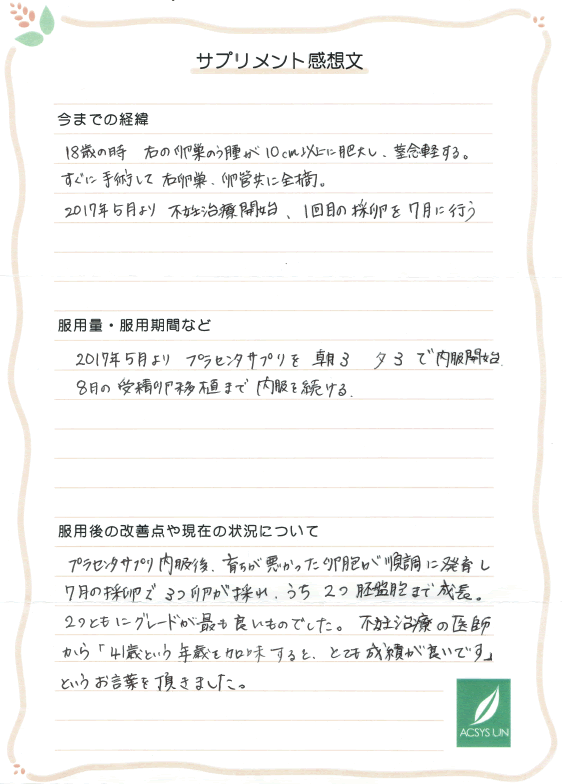 サプリメント感想文
今までの経緯
18歳の時 右の卵巣のう腫が10cm以上に肥大し、茎念転する。
すぐに手術して右卵巣、卵管共に全摘。
2017年5月より 不妊治療開始、1回目の採卵を7月に行う
服用量・服用期間など
2017年5月より プラセンタサプリを 朝3 夕3 で内服開始
8月の受精卵移植まで内服を続ける.
服用後の改善点や現在の状況について
プラセンタサプリ内服後、育ちが悪かった卵胞が順調に発育し
7月の採卵で3つ卵が採れ、うち 2つ胚盤胞まで成長。
2つともにグレードが最も良いものでした。不妊治療の医師
から「41歳という年齢を加味すると、とても成績が良いです」
というお言葉を頂きました。
ACSYS LIN